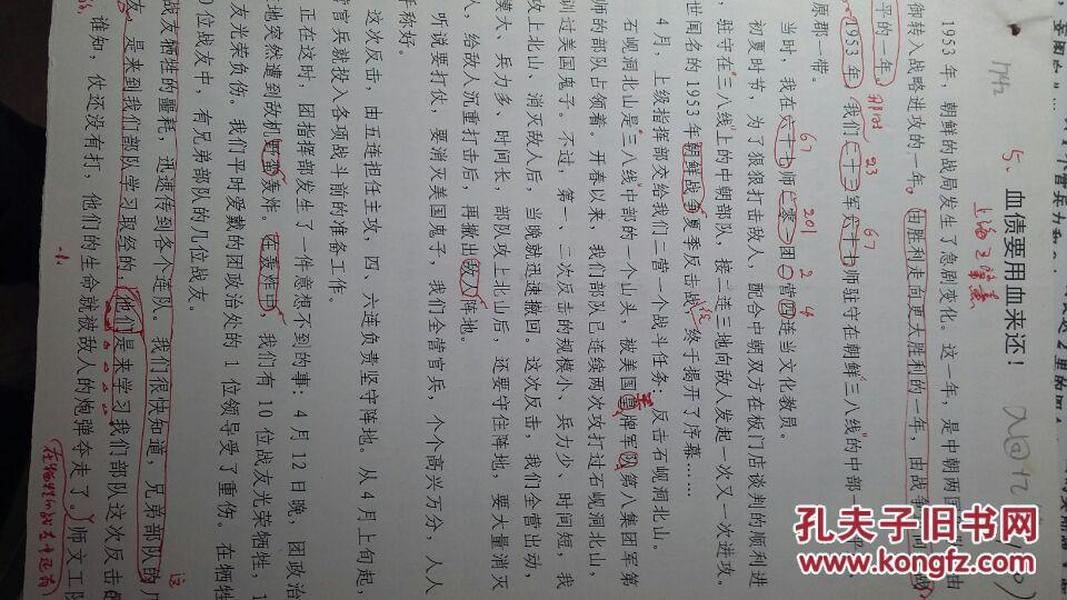 5、血债要用血来还!
1953年,朝鲜的战局发生了急剧变化。这一年,是中朝两国
由
御转入战略进攻的一年,由胜利走向更大胜利的一年,由战争
平的一年。
1953年,我们二十三军六十七师驻守在朝鲜“三八线”的中部
原那一带。
当时,我在六十七师二零一团二营四连当文化教员。
初夏时节,为了狠狠打击敌人,配合中朝双方在板门店谈判的顺利进
,驻守在“三八线”上的中朝部队,接二连三地向敌人发起一次又一次进攻。
世闻名的1953年朝鲜战争夏季反击战,终于揭开了序幕……
4月,上级指挥部交给我们二营一个战斗任务:反击石岘洞北山。
石岘洞北山是“三八线”中部的一个山头,被美国皇牌军队第八集团军第
师的部队占领着。开春以来,我们部队已连续两次攻打过石岘洞北山,
训过美国鬼子。不过,第一、二次反击的规模小、兵力少、时间短,我
攻上北山、消灭敌人后,当晚就迅速撤回。这次反击,我们全营出动,
模大、兵力多、时间长,部队攻上北山后,还要守住阵地,要大量消灭
人,给敌人沉重打击后,再撤出敌人阵地。
听说要打仗,要消灭美国鬼子,我们全营官兵,个个高兴万分,人人
手称好。
这次反击,由五连担任主攻,四、六连负责坚守阵地。从4月上旬起,
营官兵就投入各项战斗前的准备工作。
正在这时,团指挥部发生了一件意想不到的事:4月12日晚,团政治
地突然遭到敌机野蛮轰炸。在轰炸中,我们有10位战友光荣牺牲,1
友光荣负伤。我们平时爱戴的团政治处的1位领导受了重伤。在牺牲
0位战友中,有兄弟部队的几位战友。
战友牺牲的噩耗,迅速传到各个连队。我们很快知道,兄弟部队的几
友,是来到我们部队学习取经的,他们是来学习我们部队这次反击
谁知,仗还没有打,他们的生命就被敌人的炮弹夺走了。师文工队
那时
23
67
67
201
2
4
这
孔夫子旧书网
www.kongfz.com